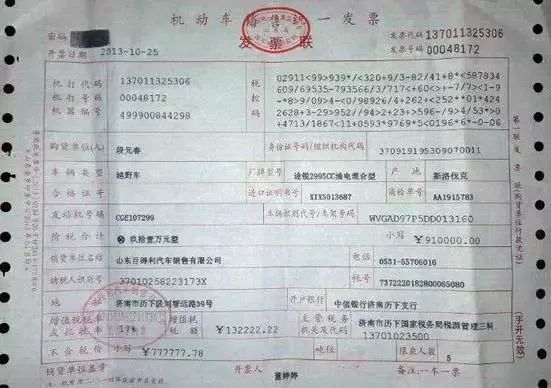 机动车销售统一发票
发票联
密码
开票日期 2013-10-25
发票代码 137011325306
发票号码 00048172
机打代码 137011325306
机打号码 00048172
机器编号 499900844298
税控码
02911<99>939*/<320+9/3-82/41+8*<587834
609/69535-793566/3/717<+60<>+-7/7><1-9
-*8>9/09>4-<0/98926/4+262+<252**01*424
2628+3-29>952//94+23+>596-/9+4/53*>0
+4713/1867<11+0593+9769*5<0196*6*-0-06
购货单位(人) 段元春 身份证号码/组织机构代码 370919195309070011
车辆类型 越野车 厂牌型号 途锐2995CC油电混合型 产地 斯洛伐克
合格证号 进口证明书号 XIX5013687 商检单号 AA1915783
发动机号码 CGE107299 车辆识别代号/车架号码 WVGAD97P5DD013160
价税合计 ⊗ 玖拾壹万元整 小写 ￥910000.00
销货单位名称 山东百得利汽车销售有限公司 电话 0531-55706016
纳税人识别号 37010258223173X 帐号 7372220182800065080
地 济南市历下区刘智远路39号 开户银行 中信银行济南历下支行
增值税税率或征收率 17% 增值税税额 ￥132222.22 主管税务机关及代码 济南市历下国家税务局税源管理三科
13701023500
不含税价 小写 ￥777777.78 吨位 限乘人数 5
销货单位盖章 开票人 董婷婷 备注:一车一票
第一联 发票联(购货单位付款凭证)
(手开无效)